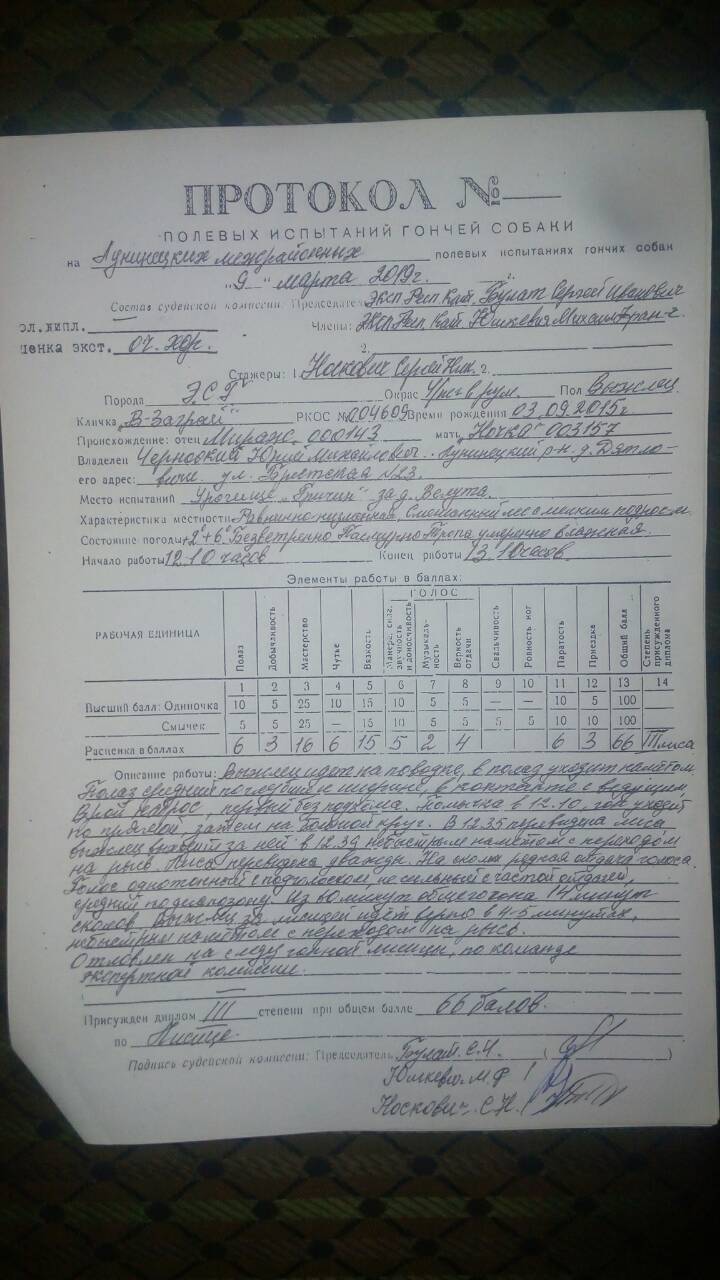 ПРОТОКОЛ №—
ПОЛЕВЫХ ИСПЫТАНИЙ ГОНЧЕЙ СОБАКИ
на Лунинецких межрайонных полевых испытаниях гончих собак
„9" марта 2019г. г.
Состав судейской комиссии: Председатель Эксп Респ Кат. Булат Сергей Иванович
ОЛ. ДИПЛ. — Члены: Эксп Респ Кат. Юшкевич Михаил
ЦЕНКА ЭКСТ. оч. хор. 2.
Стажеры: 1. Носкович Сергей Ник. 2.
Порода Э.С.Г Окрас Ч/пег в рум. Пол Выжлец
Кличка „В-Заграй" РКОС № 004609 Время рождения 03.09.2015г
Происхождение: отец Мираж 000143 мать „Ночка" 003157
Владелец Юрий Михайлович. Лунинецкий р-н д. Дятло-
его адрес: вичи ул. Брестская №23.
Место испытаний Урочище за д. Велута.
Характеристика местности Равнинно-низменная, Смешанный лес с мелким подросом
Состояние погоды +2°+6° Безветренно Пасмурно Тропа умеренно влажная.
Начало работы 12.10 часов Конец работы 13.10 часов.
Элементы работы в баллах:
РАБОЧАЯ ЕДИНИЦА Полаз Добычливость Мастерство Чутье Вязкость ГОЛОС Манера, сила, звучность и доносчивость Музыкальность Верность отдачи Свальчивость Ровность ног Паратость Приездка Общий балл Степень присужденного диплома
1 2 3 4 5 6 7 8 9 10 11 12 13 14
Высший балл: Одиночка 10 5 25 10 15 10 5 5 — — 10 5 100
Смычек 5 5 25 — 15 10 5 5 5 5 10 10 100
Расценка в баллах 6 3 16 6 15 5 2 4 6 3 66 III лиса
Описание работы: Выжлец идет на поводке, в полаз уходит наметом.
Полаз средний по глубине и ширине, в контакте с ведущим.
первый без подъема. Помычка в 12.10, гон уходит
по прямой, затем на Большой круг. В 12.35 перевидена лиса
выжлец за ней в 12.39 небыстрым наметом с переходом
на рысь. Лиса перевидена дважды. На сколах редкая отдача голоса.
Голос однотонный с подголоском, не сильный с частой отдачей,
средний по диапазону. Из 60 минут общего гона 14 минут
сколов. Выжлец за лисицей идет верно в 4-5 минутах,
небыстрым наметом с переходом на рысь.
Отловлен на следу гонной лисицы, по команде
экспертной комиссии.
Присужден диплом III степени при общем балле 66 балов.
по Лисице.
Подпись судейской комиссии: Председатель Булат. С.И. ( )
Юшкевич. М.Ф
Носкович. С.Н.